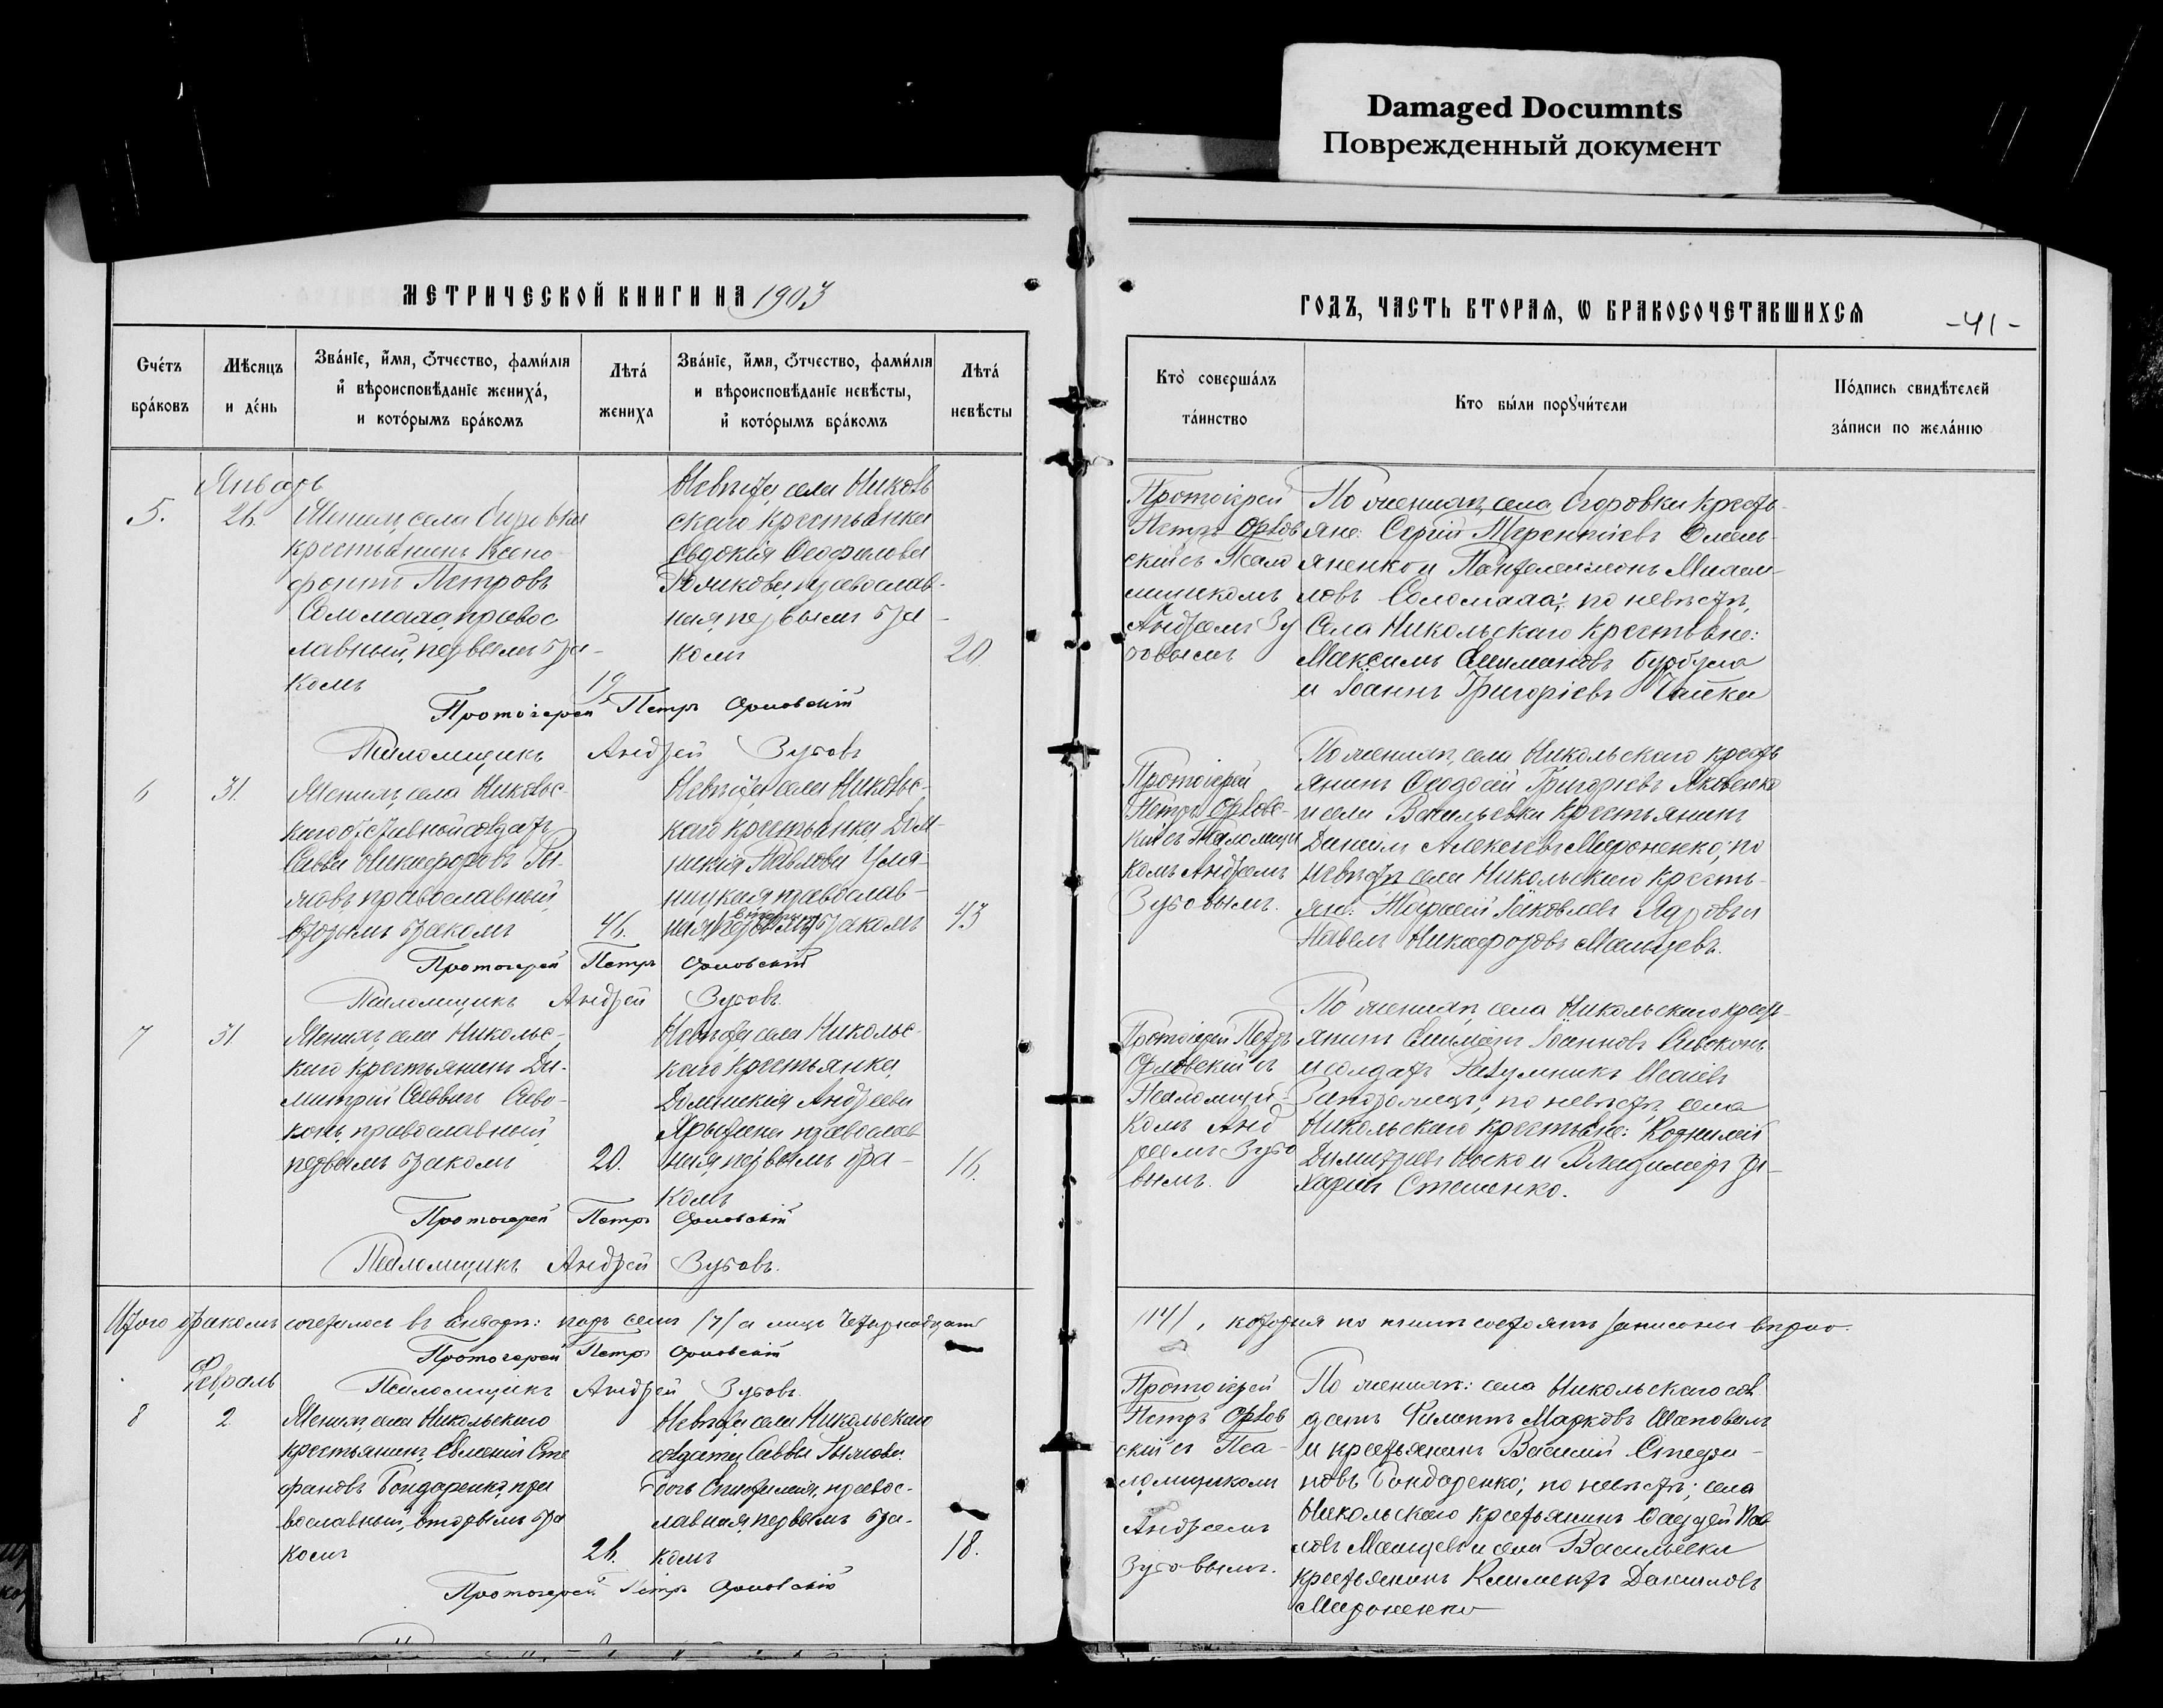 Damaged Documnts
Поврежденный документ
МЕТРИЧЕСКОЙ КНИГИ НА 1903
ГОДЪ, ЧАСТЬ ВТОРАЯ, Ѡ БРАКОСОЧЕТАВШИХСЯ
-41-
Счётъ браковъ
Мѣсяцъ и день
Званіе, имя, отчество, фамилія
и вѣроисповѣданіе жениха,
и которымъ бракомъ
Лѣта жениха
Званіе, имя, отчество, фамилія
и вѣроисповѣданіе невѣсты,
и которымъ бракомъ
Лѣта невѣсты
Кто совершалъ
таинство
Кто были поручители
Подпись свидѣтелей
записи по желанію
Январь
5.
26.
Женихъ, села Егоровки
крестьянинъ Ксено
фонтъ Петровъ
Соломаха, правос
лавный, первымъ бра-
комъ
19
Невѣста села Николь
скаго крестьянка
Евдокія Ѳеофилова
православ-
ная, первымъ бра-
комъ
20.
Протоіерей
Петръ Орлов
скій съ Псало
мщикомъ
Андреемъ Зу
бовымъ
По женихѣ, села Егоровки кресть
яне: Сергій Терентіевъ Омель-
яненко и Пантелеимонъ Михаи-
ловъ Соломаха; по невѣстѣ,
Села Никольскаго крестьяне:
Максимъ
и Іоаннъ Григоріевъ Чайка
Протоіерей Петръ Орловскій
Псаломщикъ Андрей Зубовъ
6
31.
Женихъ, села Никольс-
каго отставной солдатъ
Савва Никифоровъ Ры-
православный,
вторымъ бракомъ
46.
Невѣста села Никольс-
каго крестьянка, Дом-
никія Павлова
православ-
ная, вторымъ бракомъ
43
Протоіерей
Петръ Орловс-
кій съ Псаломщи
комъ Андреемъ
Зубовымъ.
По женихѣ, села Никольскаго кресть
янинъ Ѳеодосій Григорьевъ Яковенко
и села Васильевки крестьянинъ
Даніилъ Алексіевъ Мироненко; по
невѣстѣ села Никольскаго кресть-
яне: Яковлевъ
Павелъ Никифоровъ Мальцевъ.
Протоіерей Петръ Орловскій
Псаломщикъ Андрей Зубовъ.
7
31
Женихъ, села Никольс-
каго крестьянинъ Ди-
митрій Саввинъ Сиво-
конь, православный,
первымъ бракомъ
20.
Невѣста села Никольс-
каго крестьянка
Домникія Андреева
православ
ная, первымъ бра-
комъ
16.
Протоіерей Петръ
Орловскій съ
Псаломщи-
комъ Анд
реемъ Зубо
вымъ.
По женихѣ, села Никольскаго кресть
янинъ Іоанновъ Сивоконь
и солдатъ Разумникъ
по невѣстѣ, села
Никольскаго крестьяне: Корнилій
Димитріевъ Носко и Владимиръ За-
харіинъ Стешенко.
Протоіерей Петръ Орловскій
Псаломщикъ Андрей Зубовъ.
Итого бракомъ сочеталось въ Январѣ: паръ семь /7/ а лицъ четырнадцать
/14/, которыя по книгѣ состоятъ записаны вѣрно.
Протоіерей Петръ Орловскій
Псаломщикъ Андрей Зубовъ.
Февраль
8
2
Женихъ, села Никольскаго
крестьянинъ, Евменій Сте
фановъ Бондаренко, пра
вославный, вторымъ бра
комъ
26.
Невѣста, села Никольскаго
солдата Саввы
дочь православ-
лавная, первымъ бра-
комъ
18.
Протоіерей
Петръ Орлов
скій съ Пса-
ломщикомъ
Андреемъ
Зубовымъ.
По женихѣ: села Никольскаго сол
датъ Марковъ Шаповалъ
и крестьянинъ Василій Стефа-
новъ Бондаренко; по невѣстѣ; села
Никольскаго крестьянинъ Пав
ловъ Мальцевъ и села Васильевки
крестьянинъ Климентъ Даниловъ
Мироненко
Протоіерей Петръ Орловскій